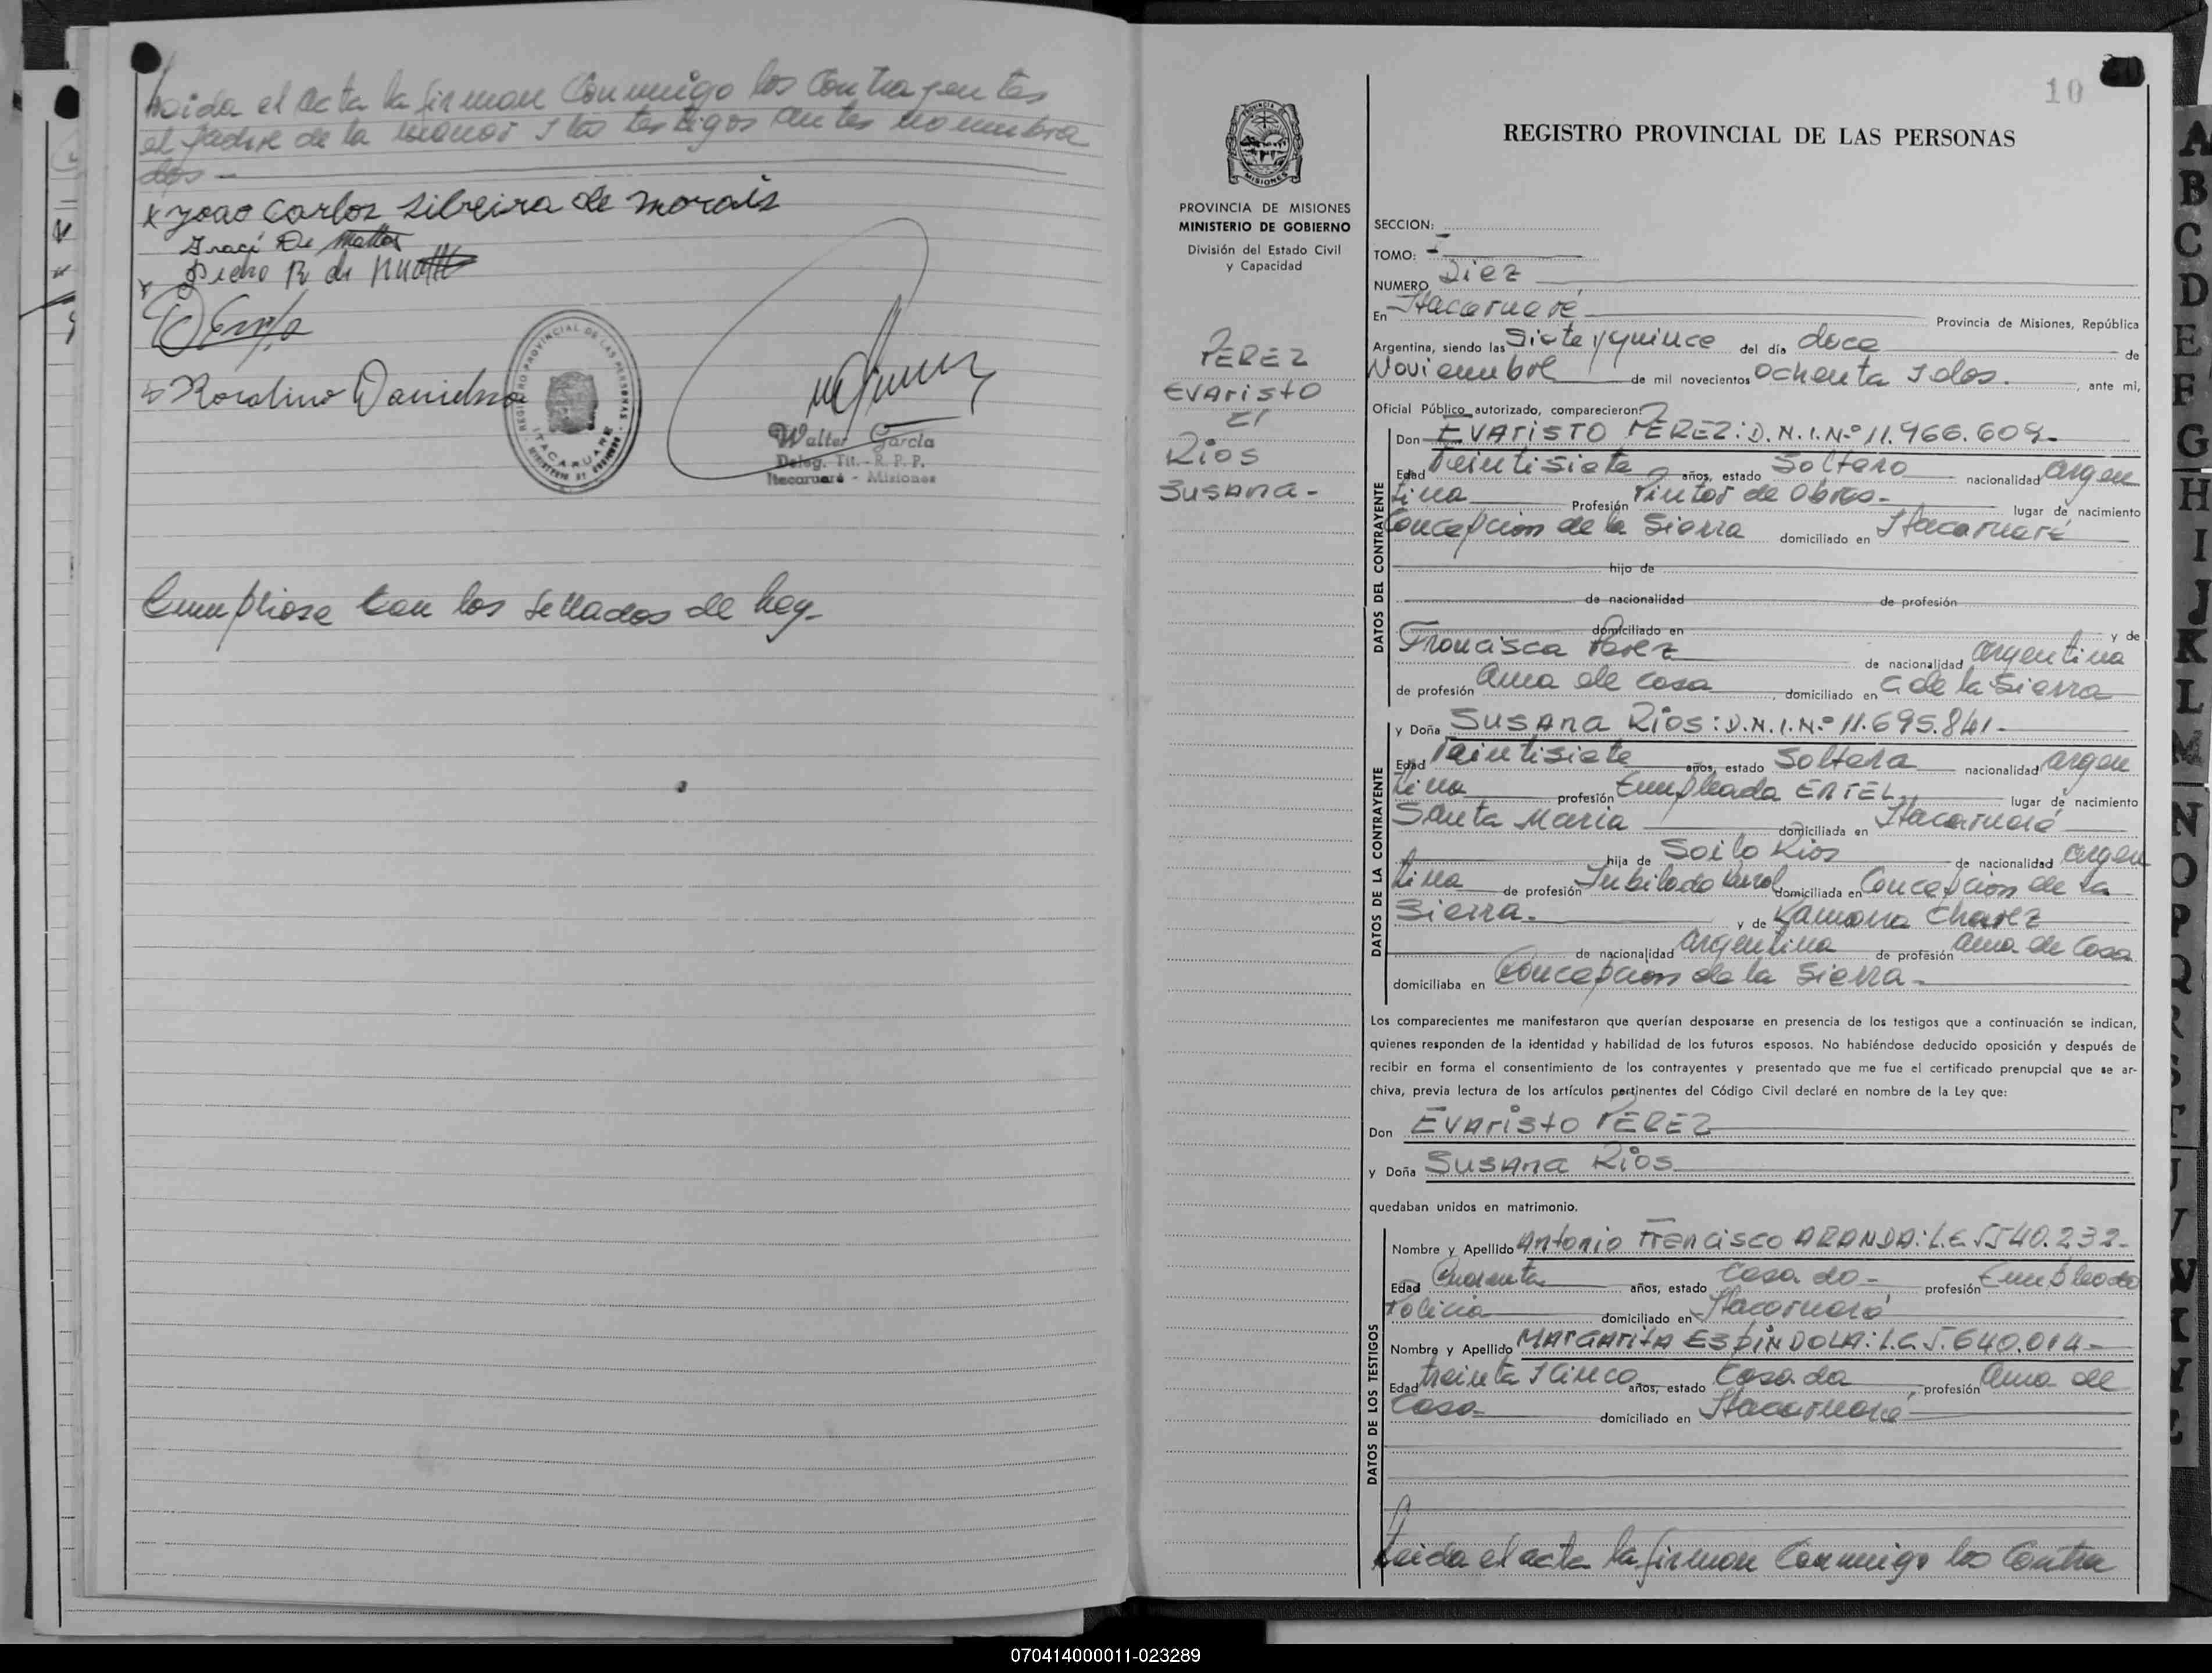 Leida el acta la firman Conmigo los Contrayentes
el padre de la menor y los testigos antes nombra
dos -
x Joao Carlos Silveira de Morais
Iraci De Mattos
x Pedro R de
Rosalino
REGISTRO PROVINCIAL DE LAS PERSONAS
ITACARUARE
Walter García
Deleg. Tit. - R. P. P.
Itacaruaré - Misiones
Cumpliose con los Sellados de hoy-
10
PROVINCIA DE MISIONES
MINISTERIO DE GOBIERNO
División del Estado Civil
y Capacidad
PEREZ
Evaristo
c/
Rios
Susana -
REGISTRO PROVINCIAL DE LAS PERSONAS
SECCION: -
TOMO: -
NUMERO Diez
En Itacaruaré Provincia de Misiones, República
Argentina, siendo las Siete y quince del día doce de
Noviembre de mil novecientos Ochenta y dos. , ante mi,
Oficial Público autorizado, comparecieron:
DATOS DEL CONTRAYENTE
Don EVARISTO PEREZ: D.N.I.Nº 11.966.609-
Edad Veintisiete años, estado Soltero nacionalidad argen
tina Profesión Pintor de Obras- lugar de nacimiento
Concepcion de la Sierra domiciliado en Itacaruaré
hijo de
de nacionalidad de profesión
domiciliado en y de
Francisca Perez de nacionalidad argentina
de profesión Ama de casa , domiciliado en C. de la Sierra
DATOS DE LA CONTRAYENTE
y Doña Susana Rios: D.N.I.Nº 11.695.841-
Edad Veintisiete años, estado Soltera nacionalidad argen
tina profesión Empleada ENTEL lugar de nacimiento
Santa Maria domiciliada en Itacaruaré
hija de Soilo Rios de nacionalidad argen
tina de profesión Jubilado Rural domiciliada en Concepcion de la
Sierra. y de Ramona Chavez
de nacionalidad argentina de profesión ama de Casa
domiciliaba en Concepcion de la Sierra-
Los comparecientes me manifestaron que querían desposarse en presencia de los testigos que a continuación se indican,
quienes responden de la identidad y habilidad de los futuros esposos. No habiéndose deducido oposición y después de
recibir en forma el consentimiento de los contrayentes y presentado que me fue el certificado prenupcial que se ar-
chiva, previa lectura de los artículos pertinentes del Código Civil declaré en nombre de la Ley que:
Don Evaristo PEREZ
y Doña Susana Rios
quedaban unidos en matrimonio.
DATOS DE LOS TESTIGOS
Nombre y Apellido Antonio Francisco ARANDA: L.E 5540.232-
Edad Cuarenta años, estado Casado- profesión Empleado
Policia domiciliado en Itacaruaré
Nombre y Apellido MARGARITA ESPINDOLA: L.C 5.640.014-
Edad treinta y Cinco años, estado Casada , profesión Ama de
Casa- domiciliado en Itacaruaré
Leida el acta la firman Conmigo los Contra
A
B
C
D
E
F
G
H
I
J
K
L
M
N
O
P
Q
070414000011-023289